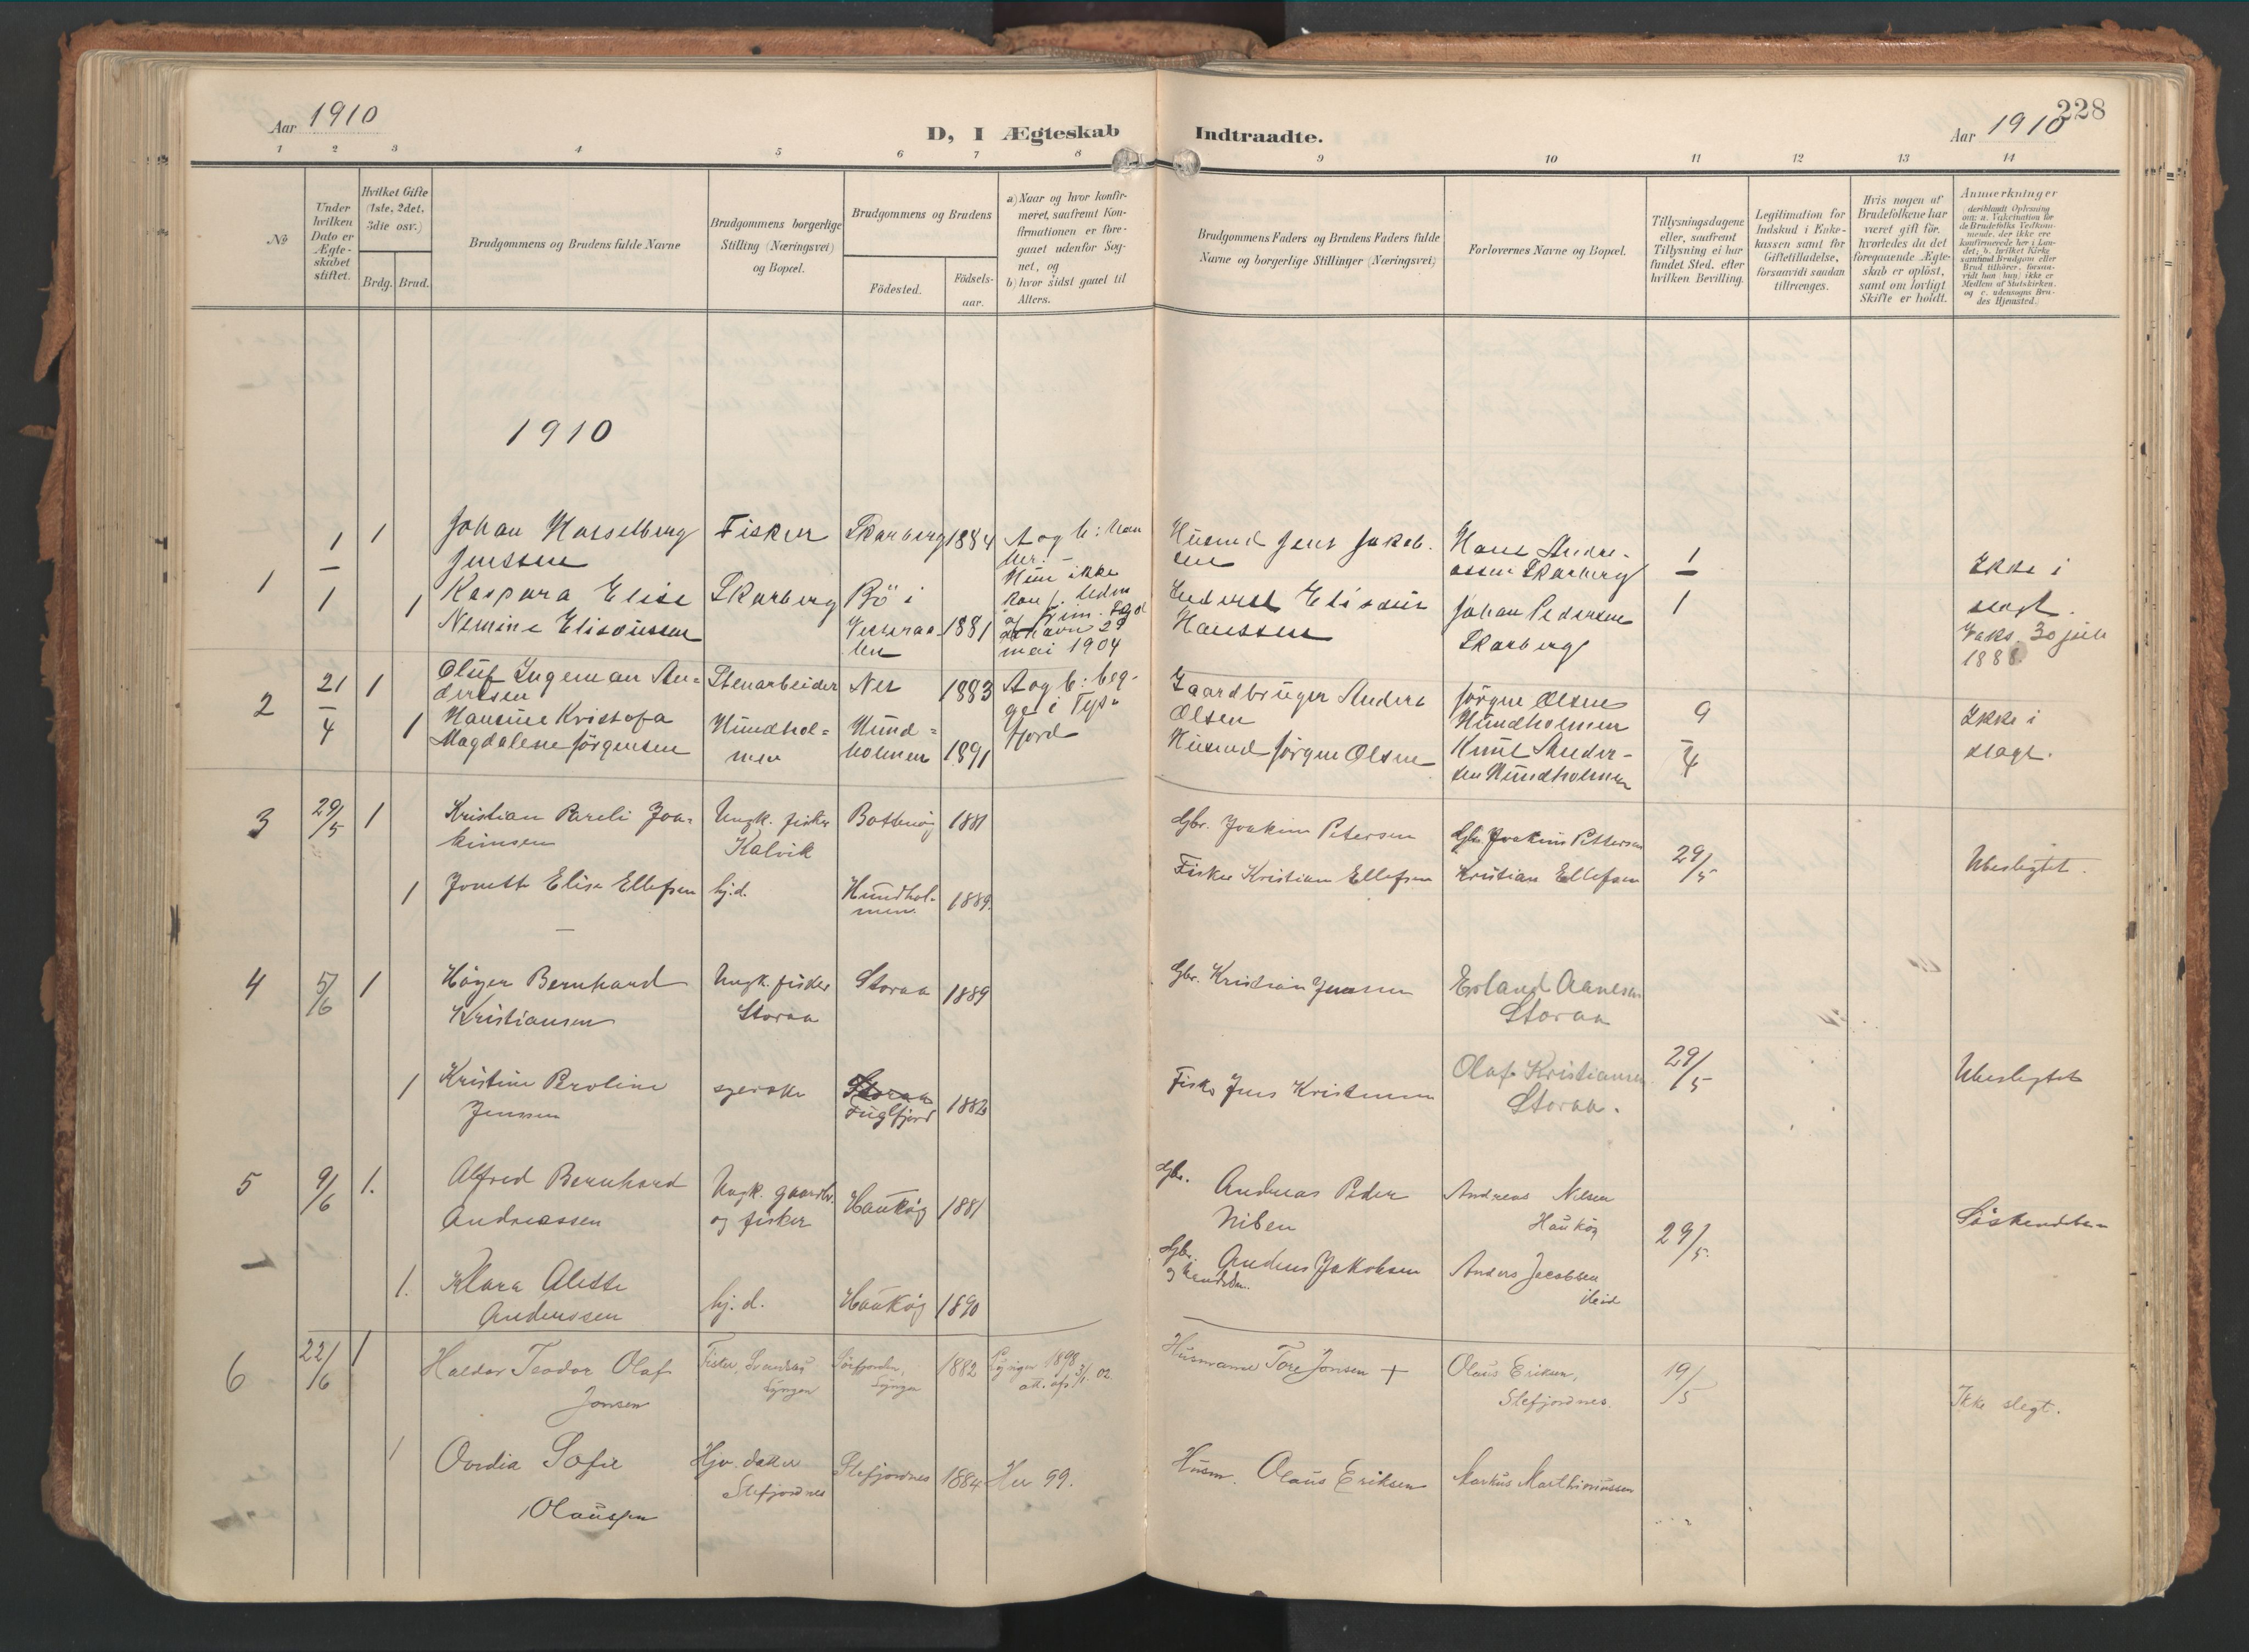 228
Aar 1910
D, I Ægteskab Indtraadte.
Aar 1910
1 2 3 4 5 6 7 8 9 10 11 12 13 14
No
Under
hvilken
Dato er
Ægte-
skabet
stiftet.
Hvilket Gifte
(1ste, 2det,
3die osv.)
Brdg. Brud.
Brudgommens og Brudens fulde Navne
Brudgommens borgerlige
Stilling (Næringsvei)
og Bopæl.
Brudgommens og Brudens
Födested.
Födsels-
aar.
a) Naar og hvor konfir-
meret, saafremt Kon-
firmationen er fore-
gaaet udenfor Sog-
net, og
b) hvor sidst gaaet til
Alters.
Brudgommens Faders og Brudens Faders fulde
Navne og borgerlige Stillinger (Næringsvei)
Forlovernes Navne og Bopæl.
Tillysningsdagene
eller, saafremt
Tillysning ei har
fundet Sted, efter
hvilken Bevilling.
Legitimation for
Indskud i Enke-
kassen samt for
Giftetilladelse,
forsaavidt saadan
tiltrænges.
Hvis nogen af
Brudefolkene har
været gift för,
hvorledes da det
foregaaende Ægte-
skab er oplöst,
samt om lovligt
Skifte er holdt.
Anmærkninger
(deriblandt Oplysning
om: a. Vakcination for
de Brudefolks Vedkom-
mende, der ikke ere
konfirmerede her i Lan-
det; b. hvilket Kirke-
samfund Brudgom eller
Brud tilhører, forsaa-
vidt han (hun) ikke er
Medlem af Statskirken,
og c. udensogns Bru-
des Hjemsted.)
1910
1
1/1
1
Johan Hasselberg
Jenssen
Fisker
Skarberg
1884
A og b: han
her. –
Husmd Jens Jakob-
sen
Hans Andre-
assen Skarberg
1/1
Ikke i
slegt.
1
Kaspara Elise
Nemine Elisdussen
Skarberg
Bö i
Vesteraa-
len
1881
Hun ikke
mai 1904
Hanssen
Johan Pedersen
Skarberg
Vaks. 30 juli
1888
2
21/4
1
Oluf Ingeman An-
derssen
Stenarbeider
Nes
1883
A og b: beg-
ge i Tys-
fjord
Gaardbruger Anders
Olsen
Jörgen Olsen
Hundholmen
9/4
Ikke i
slegt.
1
Hansine Kristofa
Magdalene Jörgensen
Hundhol-
men
Hund-
holmen
1891
Husmd Jörgen Olsen
Knut Ander-
sen Hundholmen
3
29/5
1
Kristian Pareli Joa-
kimsen
Ungk. fisker
Kalvik
1881
Gbr. Joakim Petersen
Gbr. Joakim Pettersen
29/5
Ubeslegtet.
1
Jonette Elise Ellefsen
hj.d.
Hundhol-
men.
1889.
Fisker Kristian Ellefsen
Kristian Ellefsen
4
5/6
1
Höger Bernhard
Kristiansen
Ungk. fisker
Storaa
Storaa
1889
Gbr. Kristian Jenssen
Erland Aanesen
Storaa
29/5
Ubeslegtet
1
Kristine Peroline
Jenssen
syerske
Storaa
Fuglfjord
188
Fisker Jens Kristensen
Olaf Kristiansen
Storaa.
5
9/6
1.
Alfred Bernhard
Andreassen
Ungk. gaardbr.
og fisker
Hauköy
1881
Gbr. Andreas Peder
Nilsen
Andreas Nilsen
Hauköy
29/5.
Söskendebarn
1.
Klara Alette
Anderssen
hj. d.
Hauköy
1890
Gbr. Anders Jakobsen
og handelsm.
Anders Jacobsen
ibid
6
22/6
1
Haldor Teodor Olaf
Jonsen
Fisker,
Lyngen
Sörfjorden,
Lyngen
1882
Lyngen 1898
att. af 3/1. 02.
Husmand Tore Jonsen +
Olaus Eriksen,
Stefjordnes.
19/5
Ikke slegt.
1
Ovidia Sofie
Olaussen
Hjv. datter
Stefjordnes
Stefjordnes
1884
Her 99.
Husm. Olaus Eriksen
Markus Marthinussen